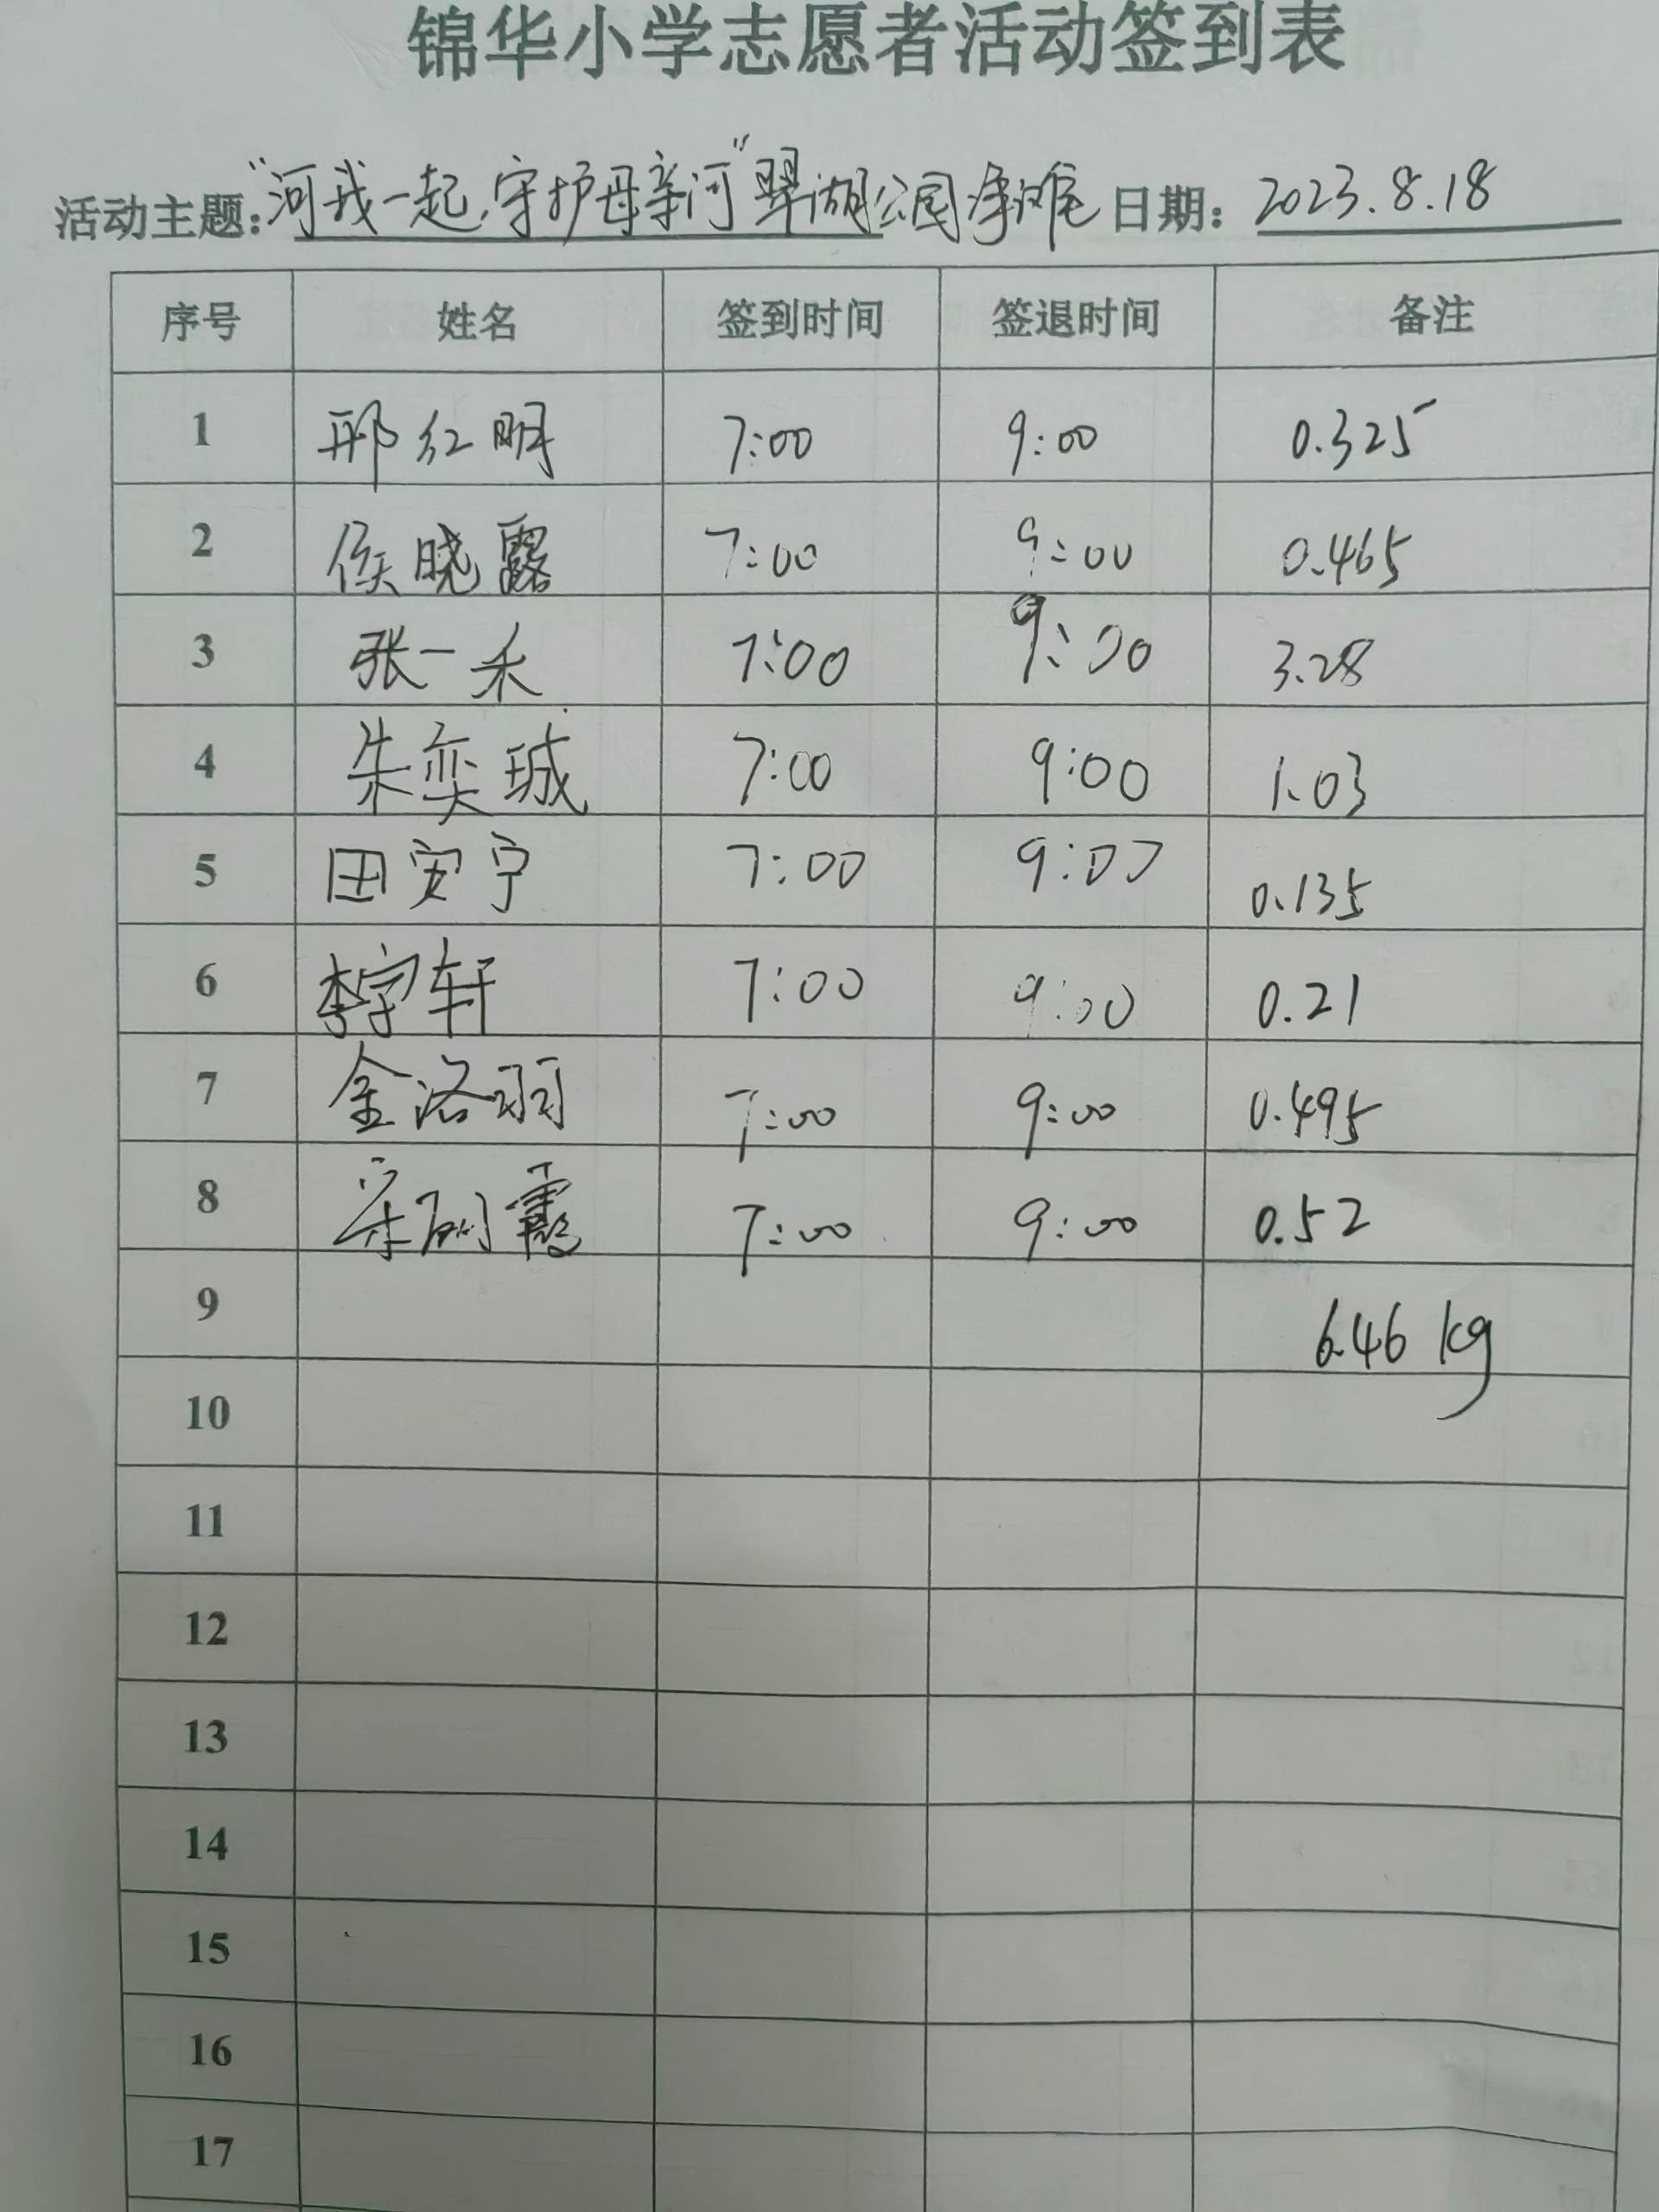 锦华小学志愿者活动签到表
活动主题："河我一起,守护母亲河"翠湖公园净滩 日期：2023.8.18
序号 姓名 签到时间 签退时间 备注
1 邢红明 7:00 9:00 0.325
2 侯晓露 7:00 9:00 0.465
3 张一禾 7:00 9:00 3.28
4 朱奕珹 7:00 9:00 1.03
5 田安宁 7:00 9:00 0.135
6 李宇轩 7:00 9:00 0.21
7 金洛羽 7:00 9:00 0.495
8 宋丽霞 7:00 9:00 0.52
9 6.46 kg
10
11
12
13
14
15
16
17